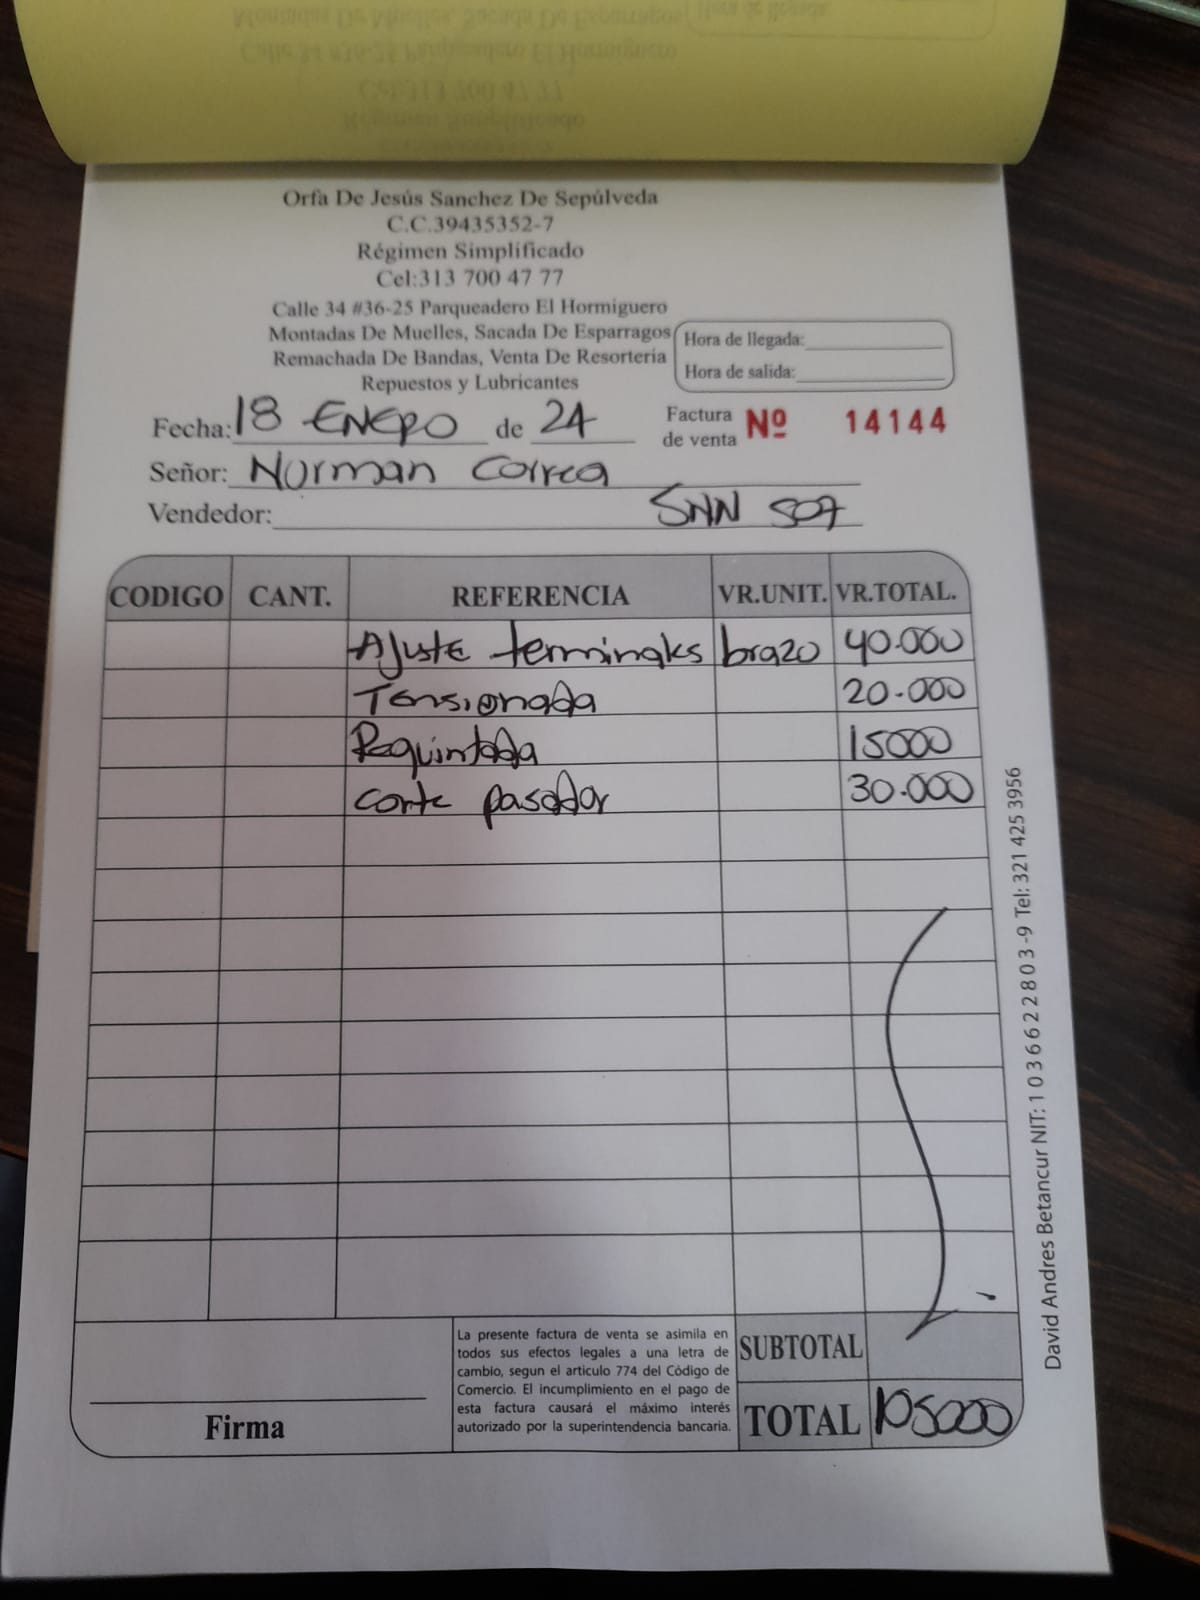 Orfa De Jesús Sanchez De Sepúlveda
C.C.39435352-7
Régimen Simplificado
Cel:313 700 47 77
Calle 34 #36-25 Parqueadero El Hormiguero
Montadas De Muelles, Sacada De Esparragos
Remachada De Bandas, Venta De Resortería
Repuestos y Lubricantes
Hora de llegada:
Hora de salida:
Fecha: 18 ENERO de 24
Factura de venta Nº 14144
Señor: Norman Correa
Vendedor: SNN 507
CODIGO CANT. REFERENCIA VR.UNIT. VR.TOTAL.
Ajuste terminales brazo 40.000
Tensionada 20.000
Requintada 15000
Corte pasador 30.000
La presente factura de venta se asimila en
todos sus efectos legales a una letra de
cambio, segun el articulo 774 del Código de
Comercio. El incumplimiento en el pago de
esta factura causará el máximo interés
autorizado por la superintendencia bancaria.
SUBTOTAL
TOTAL 105000
Firma
David Andres Betancur NIT: 1036622803-9 Tel: 321 425 3956